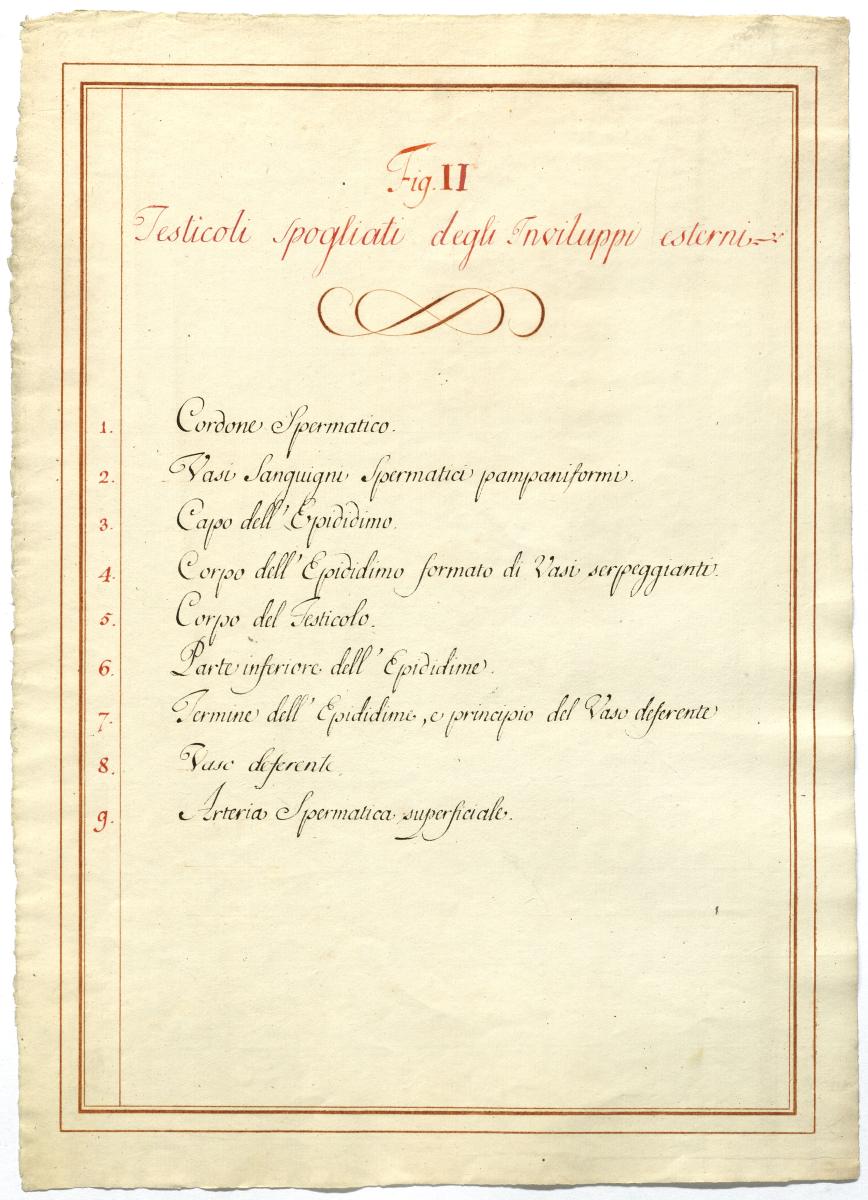 Fig. II
Testicoli Spogliati degli Inviluppi esterni
1. Cordone Spermatico.
2. Vasi Sanguigni Spermatici pampaniformi.
3. Capo dell' Epididimo.
4. Corpo dell' Epididimo formato di Vasi serpeggianti.
5. Corpo del Testicolo.
6. Parte inferiore dell' Epididime.
7. Termine dell' Epididime, e principio del Vaso deferente
8. Vaso deferente.
9. Arteria Spermatica superficiale.